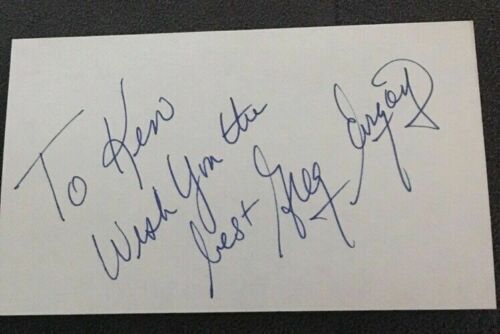 To Ken
Wish You the
best Greg